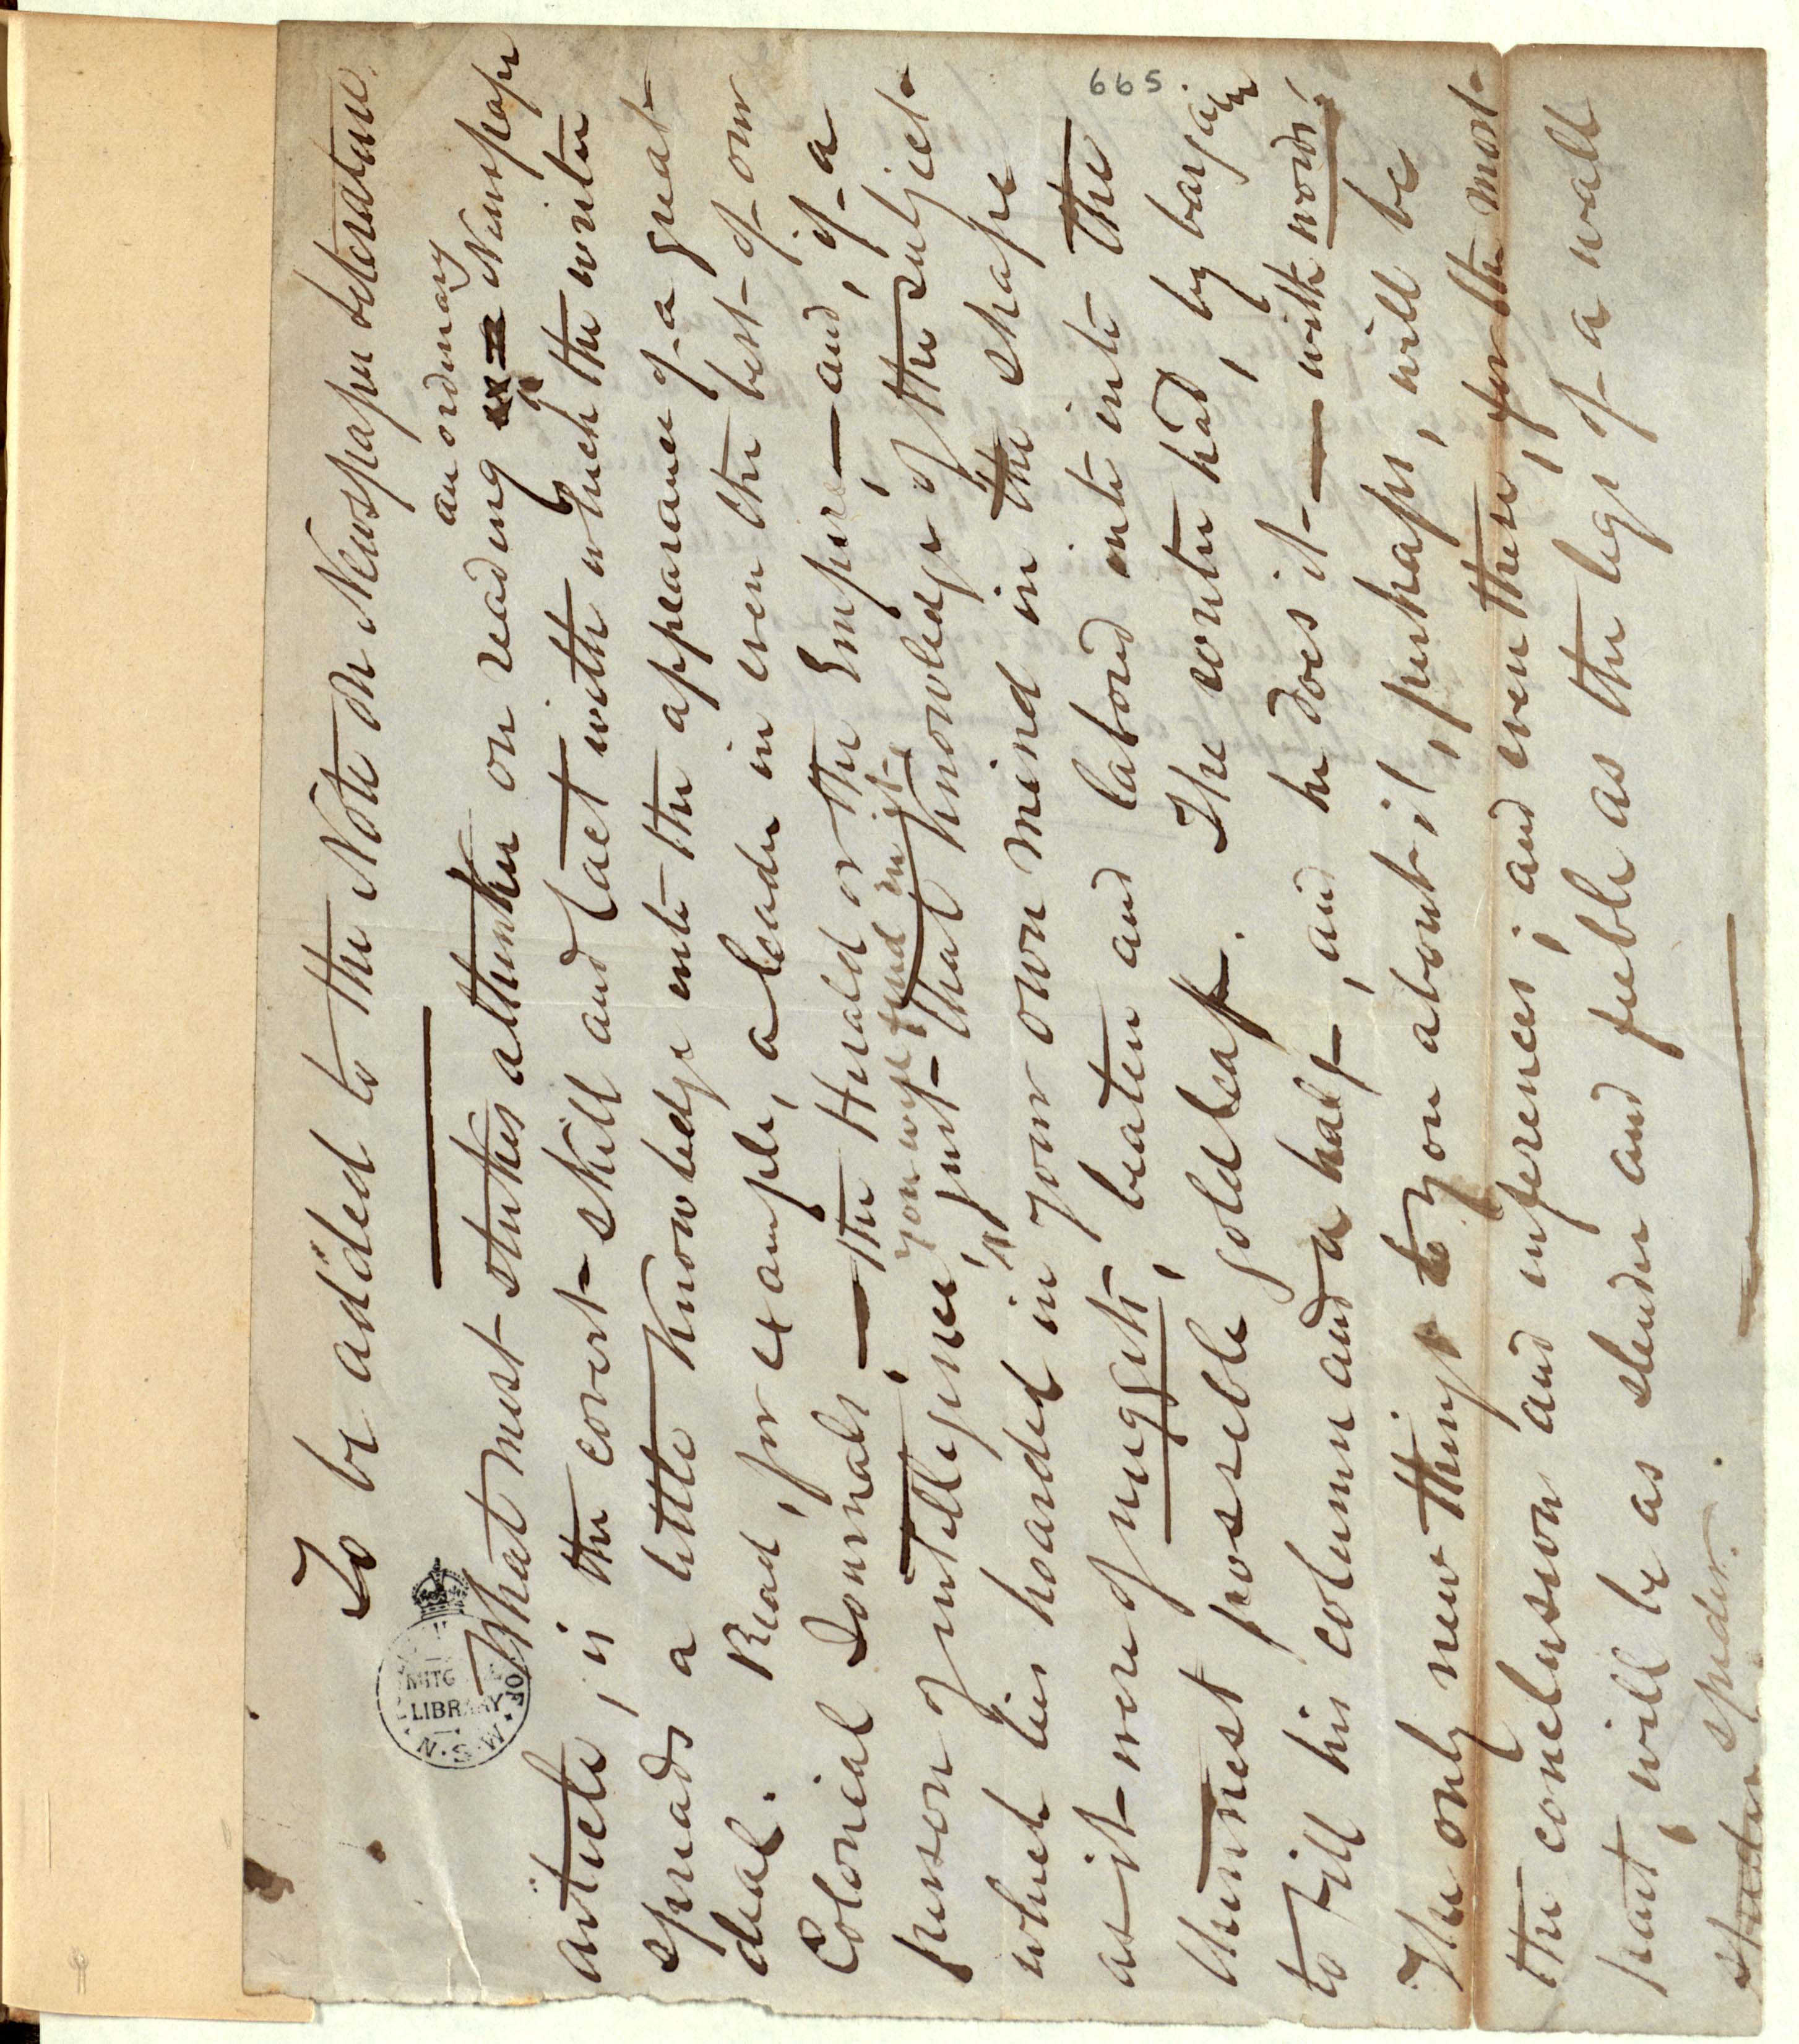 To be added to the Note on Newspaper Literature.
an ordinary
What most strikes a thinker on reading Newspaper
article, is the covert skill and tact with which the writer
spreads a little knowledge into the appearance of a great
deal. Read, for example, a leader in even the best of our
Colonial Journals, — the Herald or the Empire, — and, if a
you will find in it
person of intelligence, just that knowledge of the subject
which lies hoarded in your own mind in the shape
as it were of nuggets, beaten and laboured out into the
thinnest possible gold leaf. The writer had, by bargain
to fill his column and a half, and he does it — with words!
The only new thing to you about it, perhaps, will be
the conclusion and inferences; and even these, for the most
part, will be as slender and feeble as the legs of a wall
spider.
665
MITC
LIBRARY
OF N.S.W.